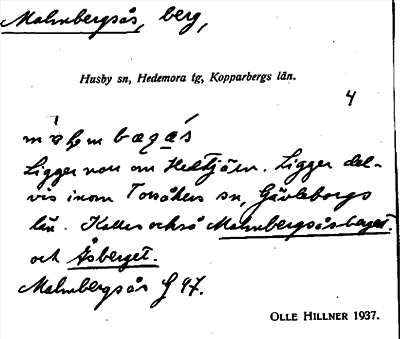 Malmbergsås, berg,
Husby sn, Hedemora tg, Kopparbergs län.
4
Ligger norr om Hedtjärn. Ligger del-
vis inom Torsåkers sn, Gävleborgs
län. Kallas också Malmbergsåsberget.
och Åsberget.
Malmbergsås § 47.
OLLE HILLNER 1937.